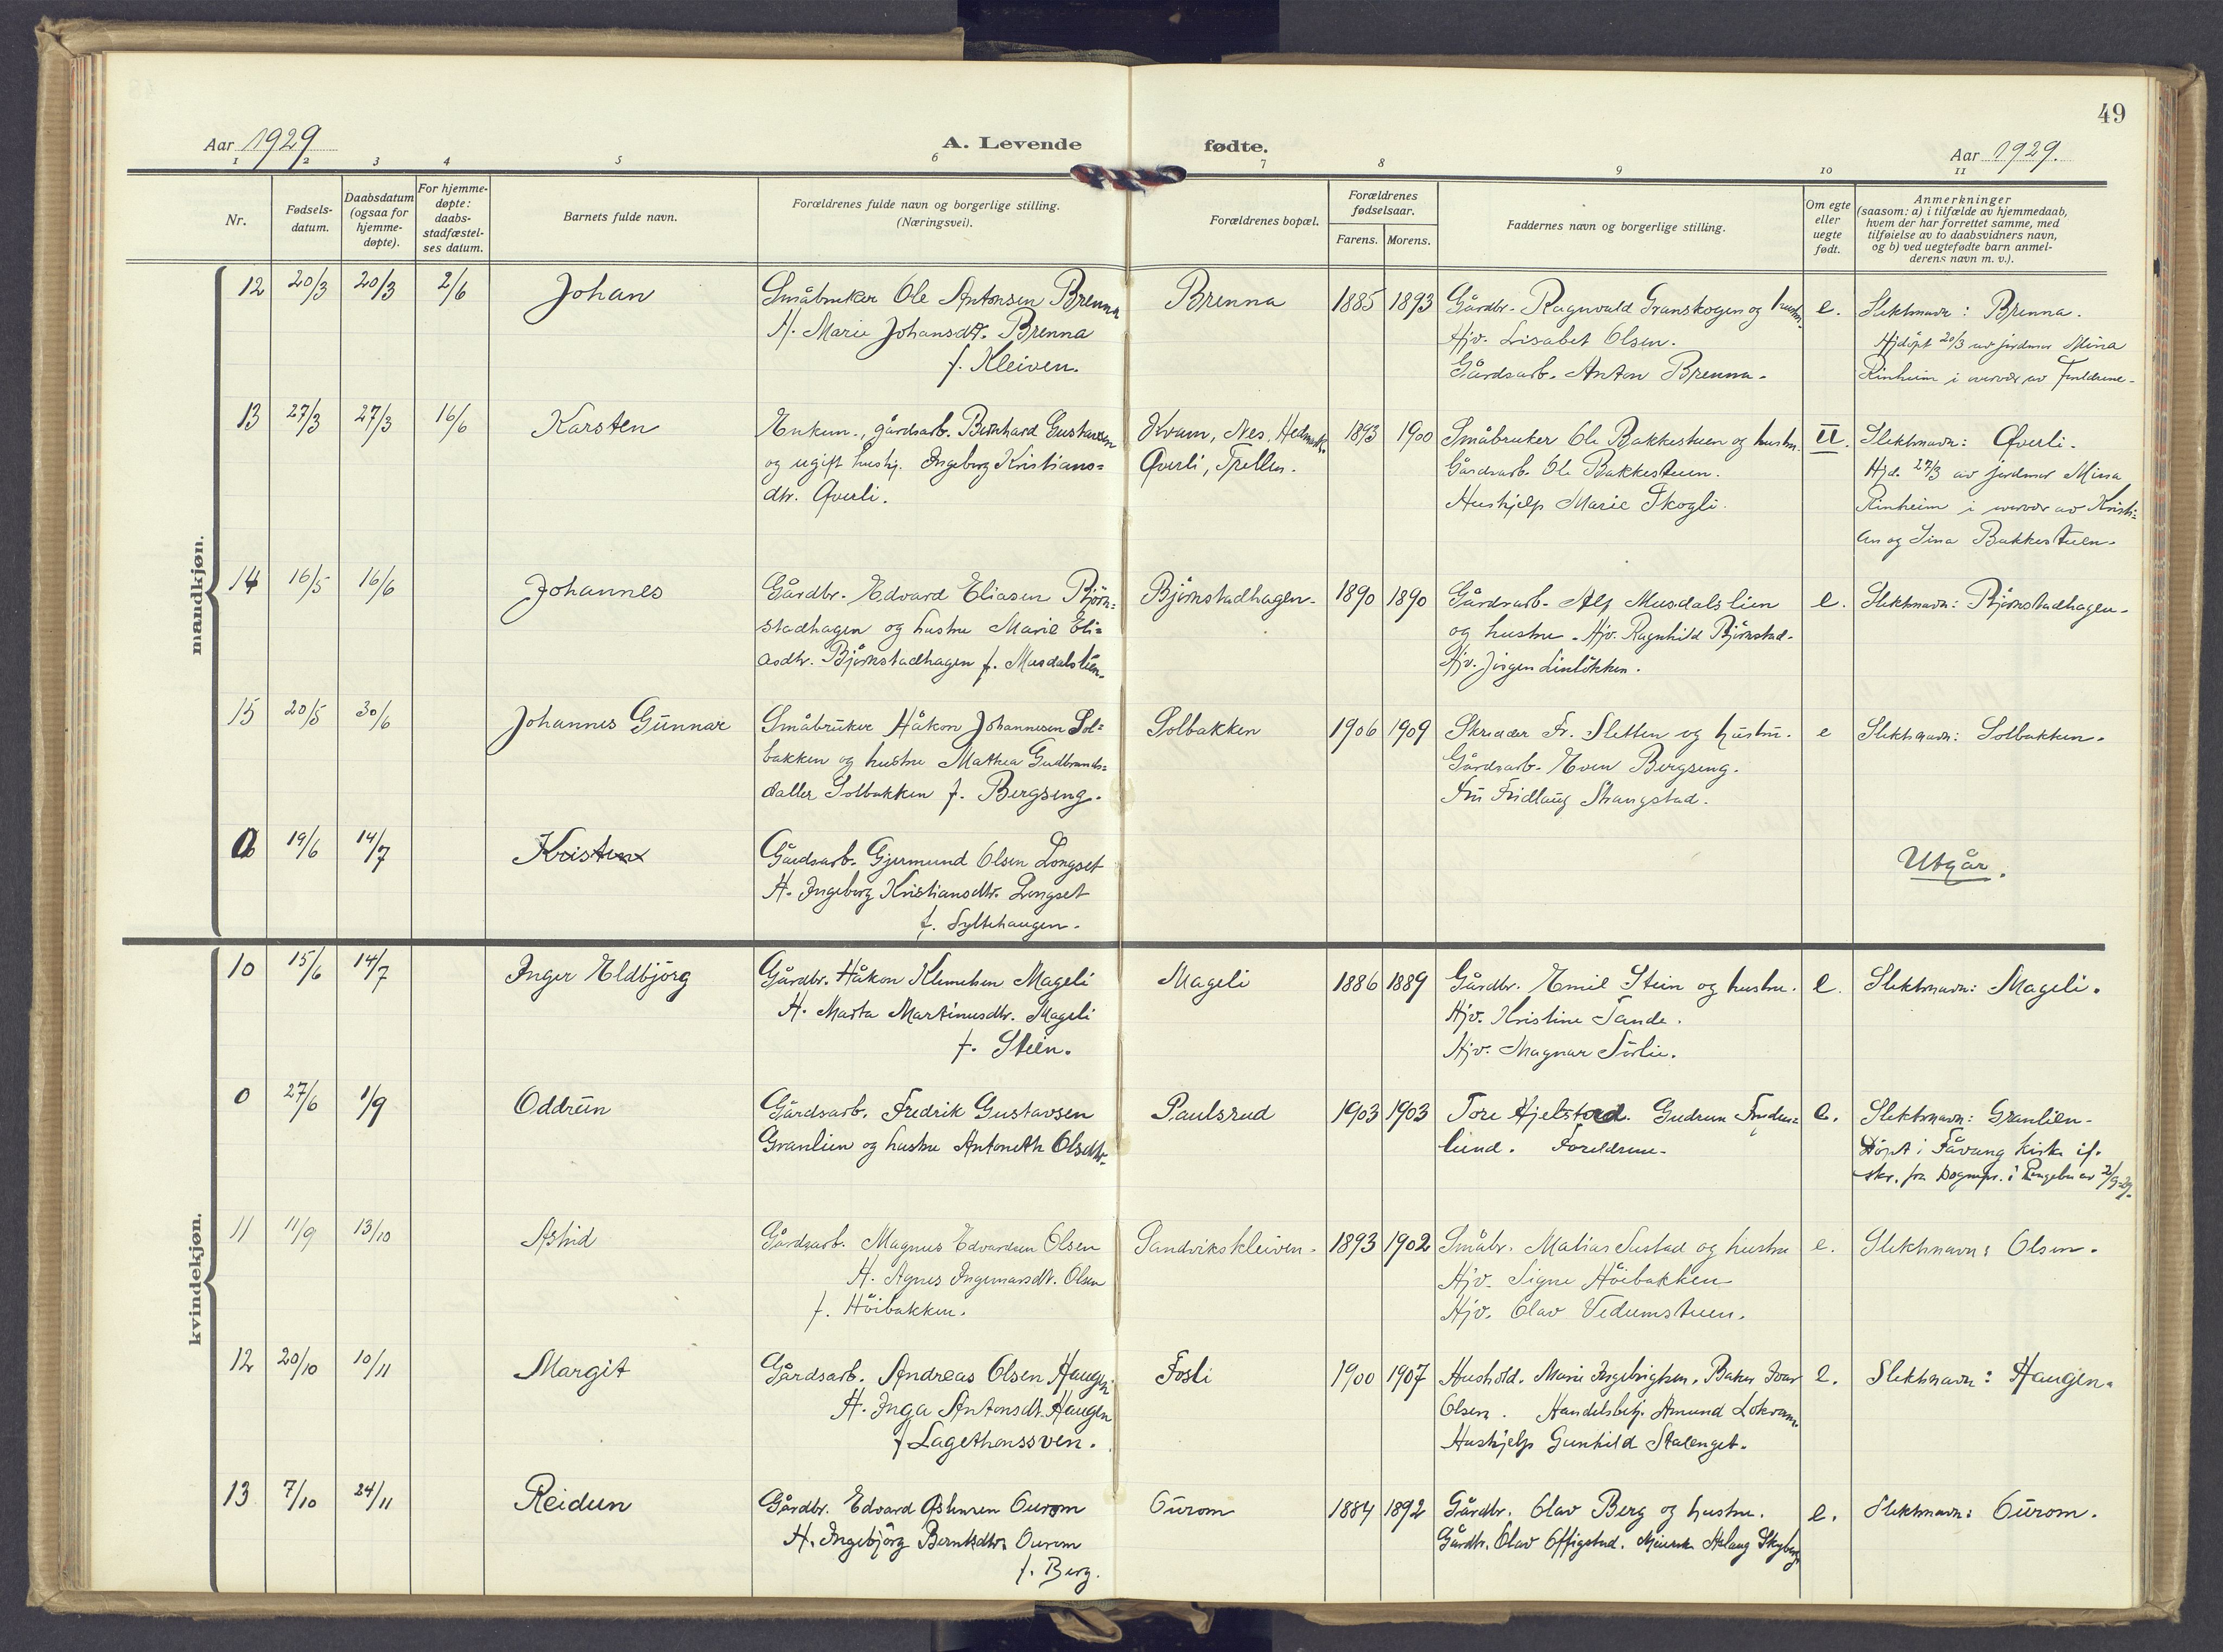 49
Aar 1929
A. Levende fødte.
Aar 1929.
1 2 3 4 5 6 7 8 9 10 11
Nr.
Fødsels-
datum.
Daabsdatum
(ogsaa for
hjemme-
døpte).
For hjemme-
døpte:
daabs-
stadfæstel-
ses datum.
Barnets fulde navn.
Forældrenes fulde navn og borgerlige stilling.
(Næringsvei).
Forældrenes bopæl.
Forældrenes
fødselsaar.
Farens. Morens.
Faddernes navn og borgerlige stilling.
Om egte
eller
uegte
født.
Anmerkninger
(saasom: a) i tilfælde av hjemmedaab,
hvem der har forrettet samme, med
tilføielse av to daabsvidners navn,
og b) ved uegtefødte barn anmel-
derens navn m. v.).
mandkjøn.
12 20/3 20/3 2/6 Johan
Småbruker Ole Antonsen Brenna
H. Marie Johansdtr. Brenna
f. Kleiven.
Brenna 1885 1893
Gårdbr. Ragnvald Granskogen og hustru.
Hjv. Lisabet Olsen.
Gårdsarb. Anton Brenna.
e.
Slektsnavn: Brenna.
Hjdöpt 20/3 av jordmor Mina
Rinheim i overvær av Foreldrene.
13 27/3 27/3 16/6 Karsten
Enkem., gårdsarb. Bernhard Gustavsen
og ugift hushj. Ingeborg Kristians=
dtr. Øverli.
Kvam, Nes, Hedmark.
Øverli, Tretten.
1893 1900
Småbruker Ole Bakkestuen og hustru.
Gårdsarb. Ole Bakkestuen.
Hushjelp Marie Skogli.
U.
Slektsnavn: Øverli.
Hjd. 27/3 av jordmor Mina
Rinheim i overvær av Kristi=
an og Sina Bakkestuen.
14 16/5 16/6 Johannes
Gårdbr. Edvard Eliasen Björn=
stadhagen og hustru Marie Eli=
asdtr. Björnstadhagen f. Musdalslien.
Björnstadhagen. 1890 1890
Gårdsarb. Alf Musdalslien
og hustru. Hjv. Ragnhild Björnstad.
Hjv. Jörgen Linlökken.
e.
Slektsnavn: Björnstadhagen.
15 20/5 30/6 Johannes Gunnar
Småbruker Håkon Johannesen Sol=
bakken og hustru Mathea Gudbrands=
datter Solbakken f. Bergseng.
Solbakken 1906 1909
Skredder Fr. Sletten og hustru.
Gårdsarb. Even Bergseng.
Fru Fridlaug Strangstad.
e
Slektsnavn: Solbakken.
0 19/6 14/7 Kristen
Gårdsarb. Gjermund Olsen Longset
H. Ingeborg Kristiansdtr. Longset
f. Syltehaugen.
Utgår.
kvindekjøn.
10 15/6 14/7 Inger Eldbjörg
Gårdbr. Håkon Klemetsen Mageli
H. Marta Martinusdtr. Mageli
f. Stein.
Mageli 1886 1889
Gårdbr. Emil Stein og hustru.
Hjv. Kristine Tande.
Hjv. Magnar Sörlie.
e.
Slektsnavn: Mageli.
0 27/6 1/9 Oddrun
Gårdsarb. Fredrik Gustavsen
Granlien og hustru Antoneth Olsdtr.
Paulsrud 1903 1903
Tore Hjelstad. Gudrun
lund. Foreldrene.
e.
Slektsnavn: Granlien.
Döpt i Fåvang kirke if.
skr. fra Sognepr. i Ringebu av 2/9-29.
11 11/9 13/10 Astrid
Gårdsarb. Magnus Edvardsen Olsen
H. Agnes Ingemarsdtr. Olsen
f. Höibakken.
Sandvikskleiven. 1893 1902
Småbr. Matias Sustad og hustru
Hjv. Signe Höibakken
Hjv. Olav Vedumstuen.
e.
Slektsnavn: Olsen.
12 20/10 10/11 Margit
Gårdsarb. Andreas Olsen Haugen
H. Inga Antonsdtr. Haugen
f. Lagethonssven.
Fosli 1900 1907
Hushold. Marie Ingebrigtsen. Baker Ivar
Olsen. Handelsbetj. Amund Lokvam.
Hushjelp Gunhild Stalenget.
e.
Slektsnavn: Haugen.
13 7/10 24/11 Reidun
Gårdbr. Edvard Østensen Ourom
H. Ingebjörg Berntsdtr. Ourom
f. Berg.
Ourom 1884 1892
Gårdbr. Olav Berg og hustru.
Gårdbr. Olav Offigstad. Aslaug Skyberg
e.
Slektsnavn: Ourom.